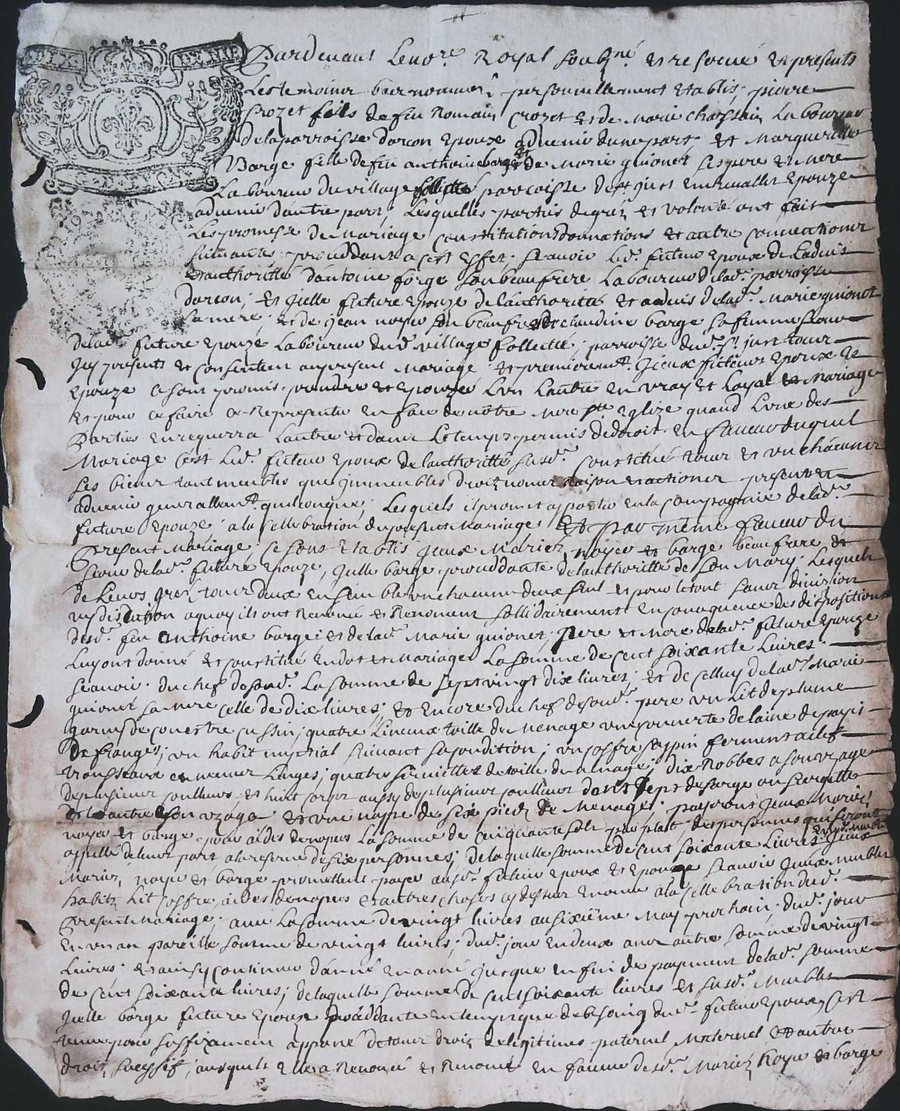 SIX DENIE
G. DE LION
Pardevant Le no.re Royal soubz.né et reservé et presents
Les temoins bas nommez personnellement Etablis pierre
Crozet fils de feu Romain Crozet et de Marie Laboureur
de la parroisse darcon Epoux advenir dune part et Margueritte
Barge fille de feu anthoine barge et de Marie guionet ses pere et Mere
Laboureur du village follietes parroisse Epouze
advenir dautre part, Lesquelles parties de grez et volonté ont fait
Les promesse de Mariage Constitutions donnations et autre Conventions
suivantes, proceddant a cest Effet, Scavoir Led. futeur Epoux de Ladvis
Et authoritte dantoine forge son beau frere Laboureur de lad. parroisse
darcon, et Jcelle future Epouze de Lauthoritte et advis de lad. Marie guionet
sa mere, et de jean noyer son beau frere et claudine barge sa femme soeur
de lad. future Epouze Laboureur dud. village follietes parroisse de st. just tous
Jcy presents et consentant au present Mariage, et premierem.t Jceux futeurs Epoux et
Epouze se sont promis prendre et Epouzer Lun Lautre en vray et Loyal Mariage
Et pour ce faire se Representer En face de notre Mere ste. Eglize quand Lune des
Parties En requerra Lautre et dans Le temps permis de droit En faveur duquel
Mariage cest Led. futeur Epoux de lauthoritté susd. Constitué tous et un chacuns
ses biens tant meubles que jmmeubles droit noms Raison et actions presents et
advenir generallem.t quelconque, Lesquels il promet apporter en la Compagnie de lad.
future Epouze, a la Cellebration du present Mariage, Et par meme faveur du
Present Mariage, se sont Etablis Jceux Mariez noyer et barge beau frere et
soeur de lad. future Epouze, Jcelle barge proceddante de lauthoritte de son Mary, Lesquels
de Leurs grez tous deux ensemble un chacun deux seul et pour le tout sans division
ny discution a quoy ils ont Renoncé et Renoncent sollidairement En consequence des dispositions
desd. feu anthoine barge et de lad. Marie guionet, pere et Mere de lad. future Epouze
Luy ont donné et constitué En dot et Mariage La somme de Cent soixante Livres
Scavoir du chef de sond. La somme de sept vingt dix livres, et de Celluy de lad. Marie
guionet sa mere celle de dix livres, et Encore du chef de sond. pere un Lit de plume
garny de couestre cussin, quatre Linceux toille de Menage une couverte de laine de payis
de franges, un habit nuptial suivant sa condition, un coffre sappin fermant a clef
trousseaux en menus Linges, quatre serviettes de toille de menage, dix Robbes a son uzage
de plusieurs coulleurs et huit corps aussy de plusieurs coulleurs dont sept de sarge ou sargettes
a son uzage et une nappe de six pied de Menage, payeront Jceux Mariez
noyer et barge pour aides de nopces La somme de Cinquante sols par plat des personnes qui seront
appellé de leur part a la reserve de six personnes, de laquelle somme de Cent soixante Livres Jceux
Mariez noyer et barge promettent payer ausd. futeur Epoux et Epouze Scavoir Jceux Meubles
habits Lit coffre aides de nopces et autres choses cy dessus Enoncé a la Cellebration dud.
Present Mariage, avec La somme de vingt livres au sixième May prochain, dud. jour
En un an pareille somme de vingt livres, dud. jour En deux ans autre somme de vingt
Livres, et ainsy continuer dannée en année jusque en fin de payement de lad. somme
de Cent soixante livres, de laquelle somme de Cent soixante livres et susd. Meubles
Jcelle barge future Epouze proceddante dud. futeur Epoux cest
tenue pour suffizament appané de tous droit de legitimes paternel Maternel Et autre
droit successif, ausquels elle a Renoncé et Renonce En faveur desd. Mariez Noyer et barge